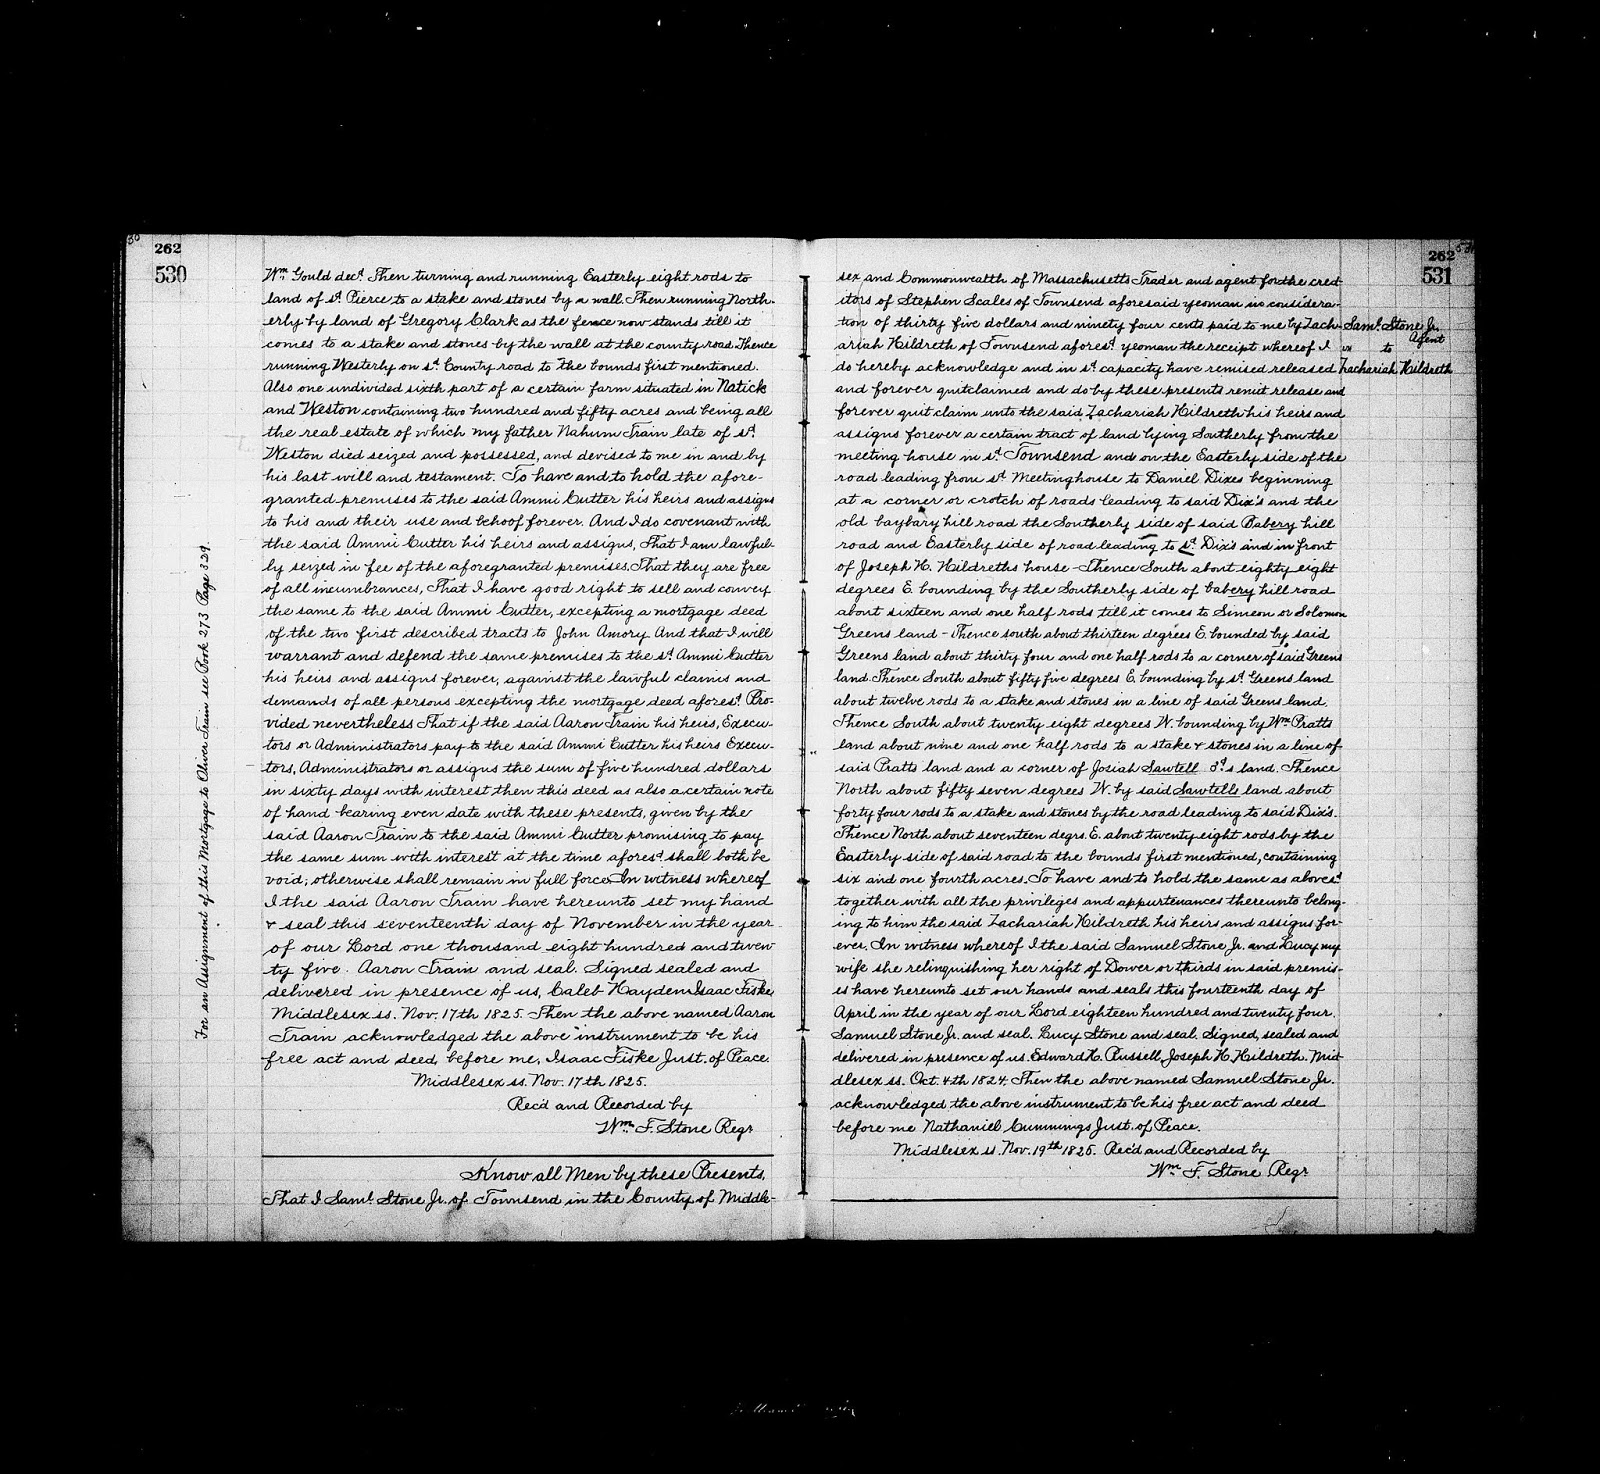 262
530
Wm Gould decd Then turning and running Easterly eight rods to
land of sd Pierce to a stake and stones by a wall. Then running North-
erly by land of Gregory Clark as the fence now stands till it
comes to a stake and stones by the wall at the county road Thence
running Westerly on sd County road to the bounds first mentioned.
Also one undivided sixth part of a certain farm situated in Natick
and Weston containing two hundred and fifty acres and being all
the real estate of which my father Nahum Train late of sd
Weston died seized and possessed, and devised to me in and by
his last will and testament. To have and to hold the afore-
granted premises to the said Ammi Cutter his heirs and assigns
to his and their use and behoof forever. And I do covenant with
the said Ammi Cutter his heirs and assigns, That I am lawful-
ly seized in fee of the aforegranted premises, That they are free
of all incumbrances, That I have good right to sell and convey
the same to the said Ammi Cutter, excepting a mortgage deed
of the two first described tracts to John Amory And that I will
warrant and defend the same premises to the sd Ammi Cutter
his heirs and assigns forever, against the lawful claims and
demands of all persons excepting the mortgage deed aforesd. Pro-
vided nevertheless That if the said Aaron Train his heirs, Execu-
tors or Administrators pay to the said Ammi Cutter his heirs Execu-
tors, Administrators or assigns the sum of five hundred dollars
in sixty days with interest then this deed as also a certain note
of hand bearing even date with these presents, given by the
said Aaron Train to the said Ammi Cutter promising to pay
the same sum with interest at the time aforesd shall both be
void; otherwise shall remain in full force. In witness whereof
I the said Aaron Train have hereunto set my hand
& seal this seventeenth day of November in the year
of our Lord one thousand eight hundred and twen
ty five. Aaron Train and seal. Signed sealed and
delivered in presence of us, Caleb Hayden, Isaac Fiske
Middlesex ss. Nov. 17th 1825. Then the above named Aaron
Train acknowledged the above instrument to be his
free act and deed, before me, Isaac Fiske Just. of Peace.
Middlesex ss. Nov. 17th 1825.
Rec'd and Recorded by
Wm F. Stone Regr
Know all Men by these Presents,
That I Saml. Stone Jr. of Townsend in the County of Middle-
For an Assignment of this Mortgage to Oliver Train see Book 273 Page 329.
262
531
sex and Commonwealth of Massachusetts Trader and agent for the cred
itors of Stephen Scales of Townsend aforesaid yeoman in considera-
tion of thirty five dollars and ninety four cents paid to me by Zach-
ariah Hildreth of Townsend aforesd yeoman the receipt whereof I
do hereby acknowledge and in sd capacity have remised released
and forever quitclaimed and do by these presents remit release and
forever quit claim unto the said Zachariah Hildreth his heirs and
assigns forever a certain tract of land lying Southerly from the
meeting house in sd Townsend and on the Easterly side of the
road leading from sd Meetinghouse to Daniel Dixes beginning
at a corner or crotch of roads leading to said Dix's and the
old baybary hill road the Southerly side of said Babery hill
road and Easterly side of road leading to sd. Dix's and in front
of Joseph H. Hildreths house - Thence South about eighty eight
degrees E. bounding by the Southerly side of babery hill road
about sixteen and one half rods till it comes to Simeon or Solomon
Greens land - Thence south about thirteen degrees E. bounded by said
Greens land about thirty four and one half rods to a corner of said Greens
land. Thence South about fifty five degrees E. bounding by sd. Greens land
about twelve rods to a stake and stones in a line of said Greens land.
Thence South about twenty eight degrees W. bounding by Wm Pratts
land about nine and one half rods to a stake & stones in a line of
said Pratts land and a corner of Josiah Sawtell 3d's land. Thence
North about fifty seven degrees W. by said Sawtells land about
forty four rods to a stake and stones by the road leading to said Dix's.
Thence North about seventeen degrs. E. about twenty eight rods by the
Easterly side of said road to the bounds first mentioned, containing
six and one fourth acres. To have and to hold the same as abovesd
together with all the privileges and appurtenances thereunto belong-
ing to him the said Zachariah Hildreth his heirs and assigns for-
ever. In witness whereof I the said Samuel Stone Jr. and Lucy my
wife she relinquishing her right of Dower or thirds in said premis-
es have hereunto set our hands and seals this fourteenth day of
April in the year of our Lord eighteen hundred and twenty four.
Samuel Stone Jr. and seal. Lucy Stone and seal. Signed, sealed and
delivered in presence of us. Edward K. Russell, Joseph H. Hildreth. Mid
dlesex ss. Oct. 4th 1824. Then the above named Samuel Stone Jr.
acknowledged the above instrument to be his free act and deed
before me Nathaniel Cummings Just. of Peace.
Middlesex ss. Nov. 19th 1825. Rec'd and Recorded by
Wm F. Stone Regr
Saml. Stone Jr.
Agent
to
Zachariah Hildreth